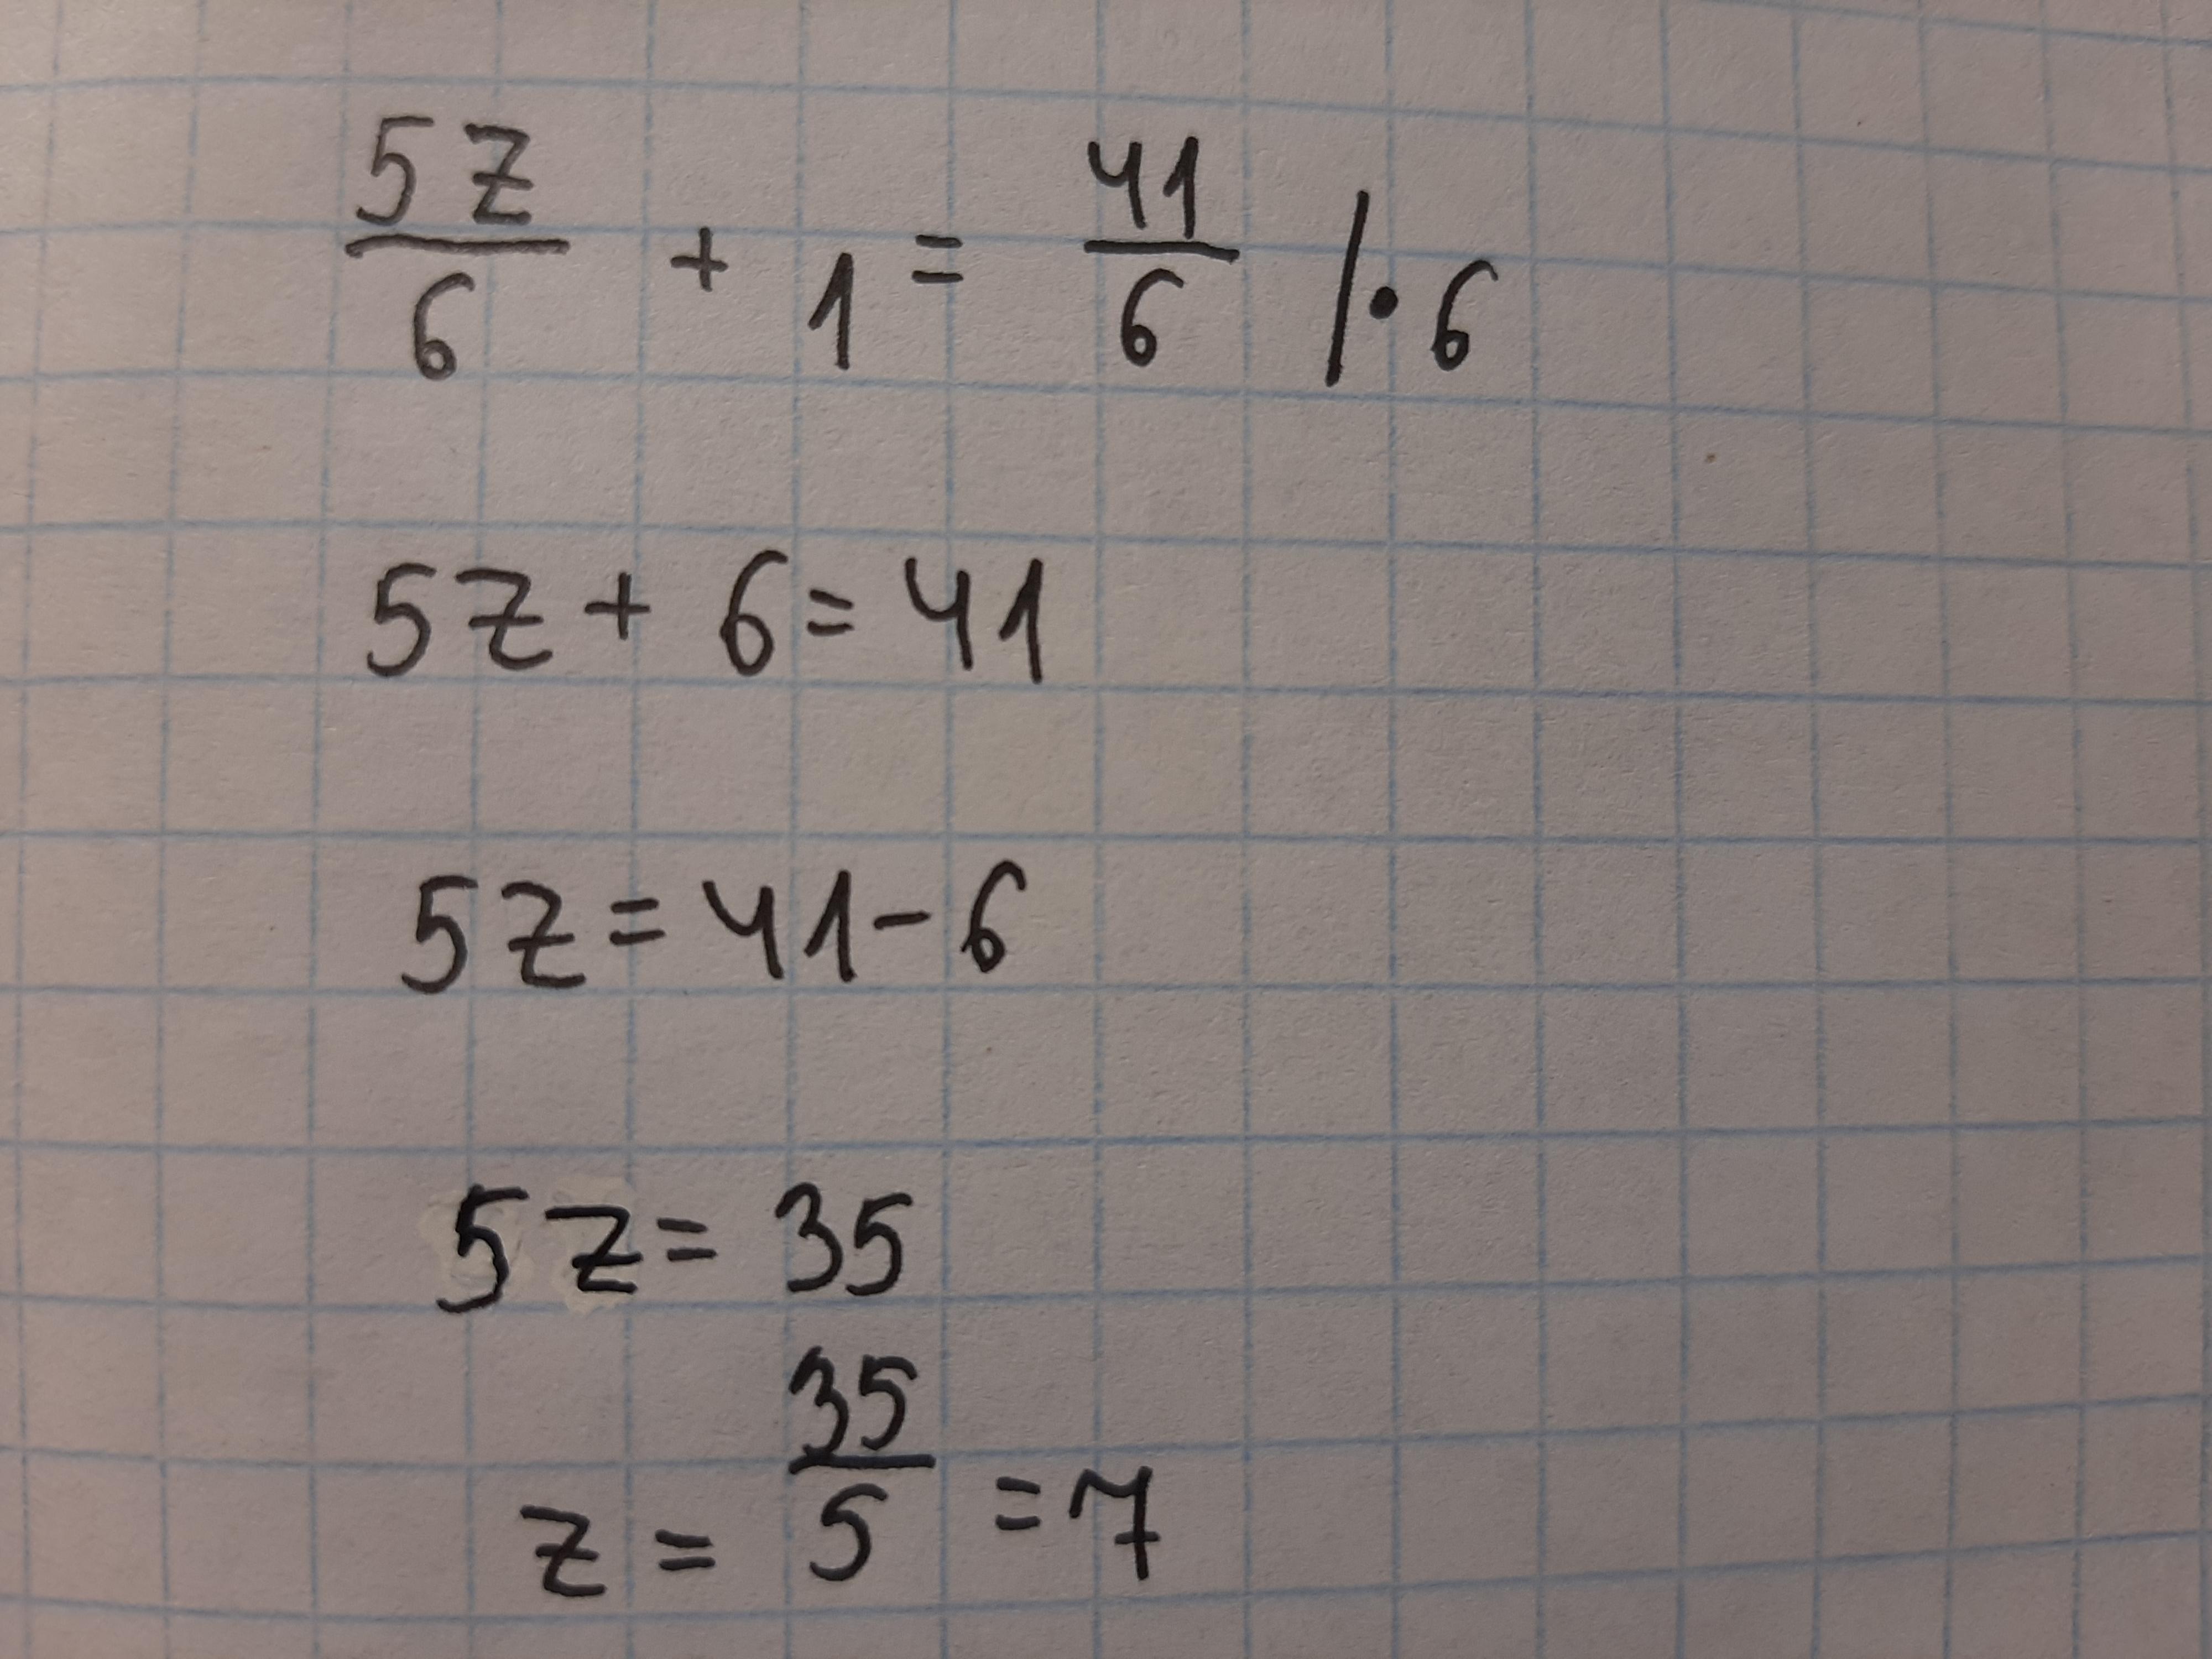 5z/6 + 1 = 41/6 /·6
5z + 6 = 41
5z = 41 - 6
5z = 35
z = 35/5 = 7